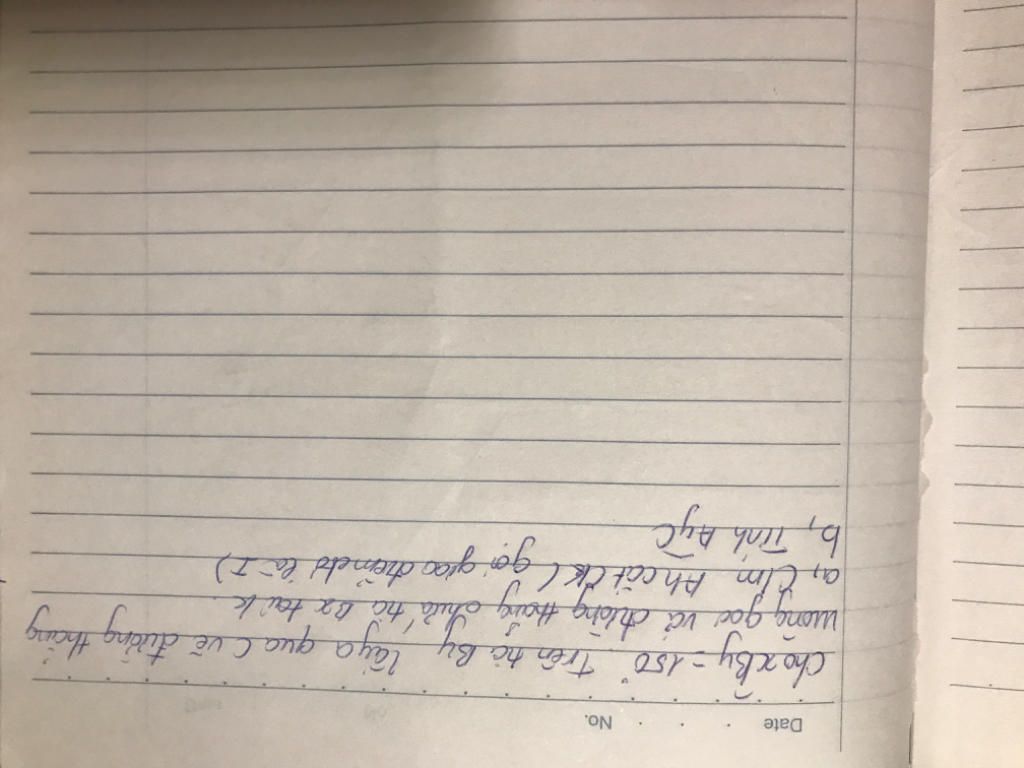 Date No.
Cho xBy = 150° Trên tia By lấy a qua C vẽ đường thẳng
vuông góc với đường thẳng chứa tia Bx tại k.
a, C/m Ah cắt Ck ( gọi giao điểm đó là I )
b, Tính AyC